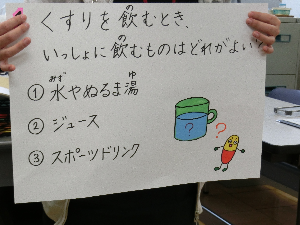 くすりを飲むとき、
いっしょに飲むものはどれがよい?
①水やぬるま湯
②ジュース
③スポーツドリンク
??